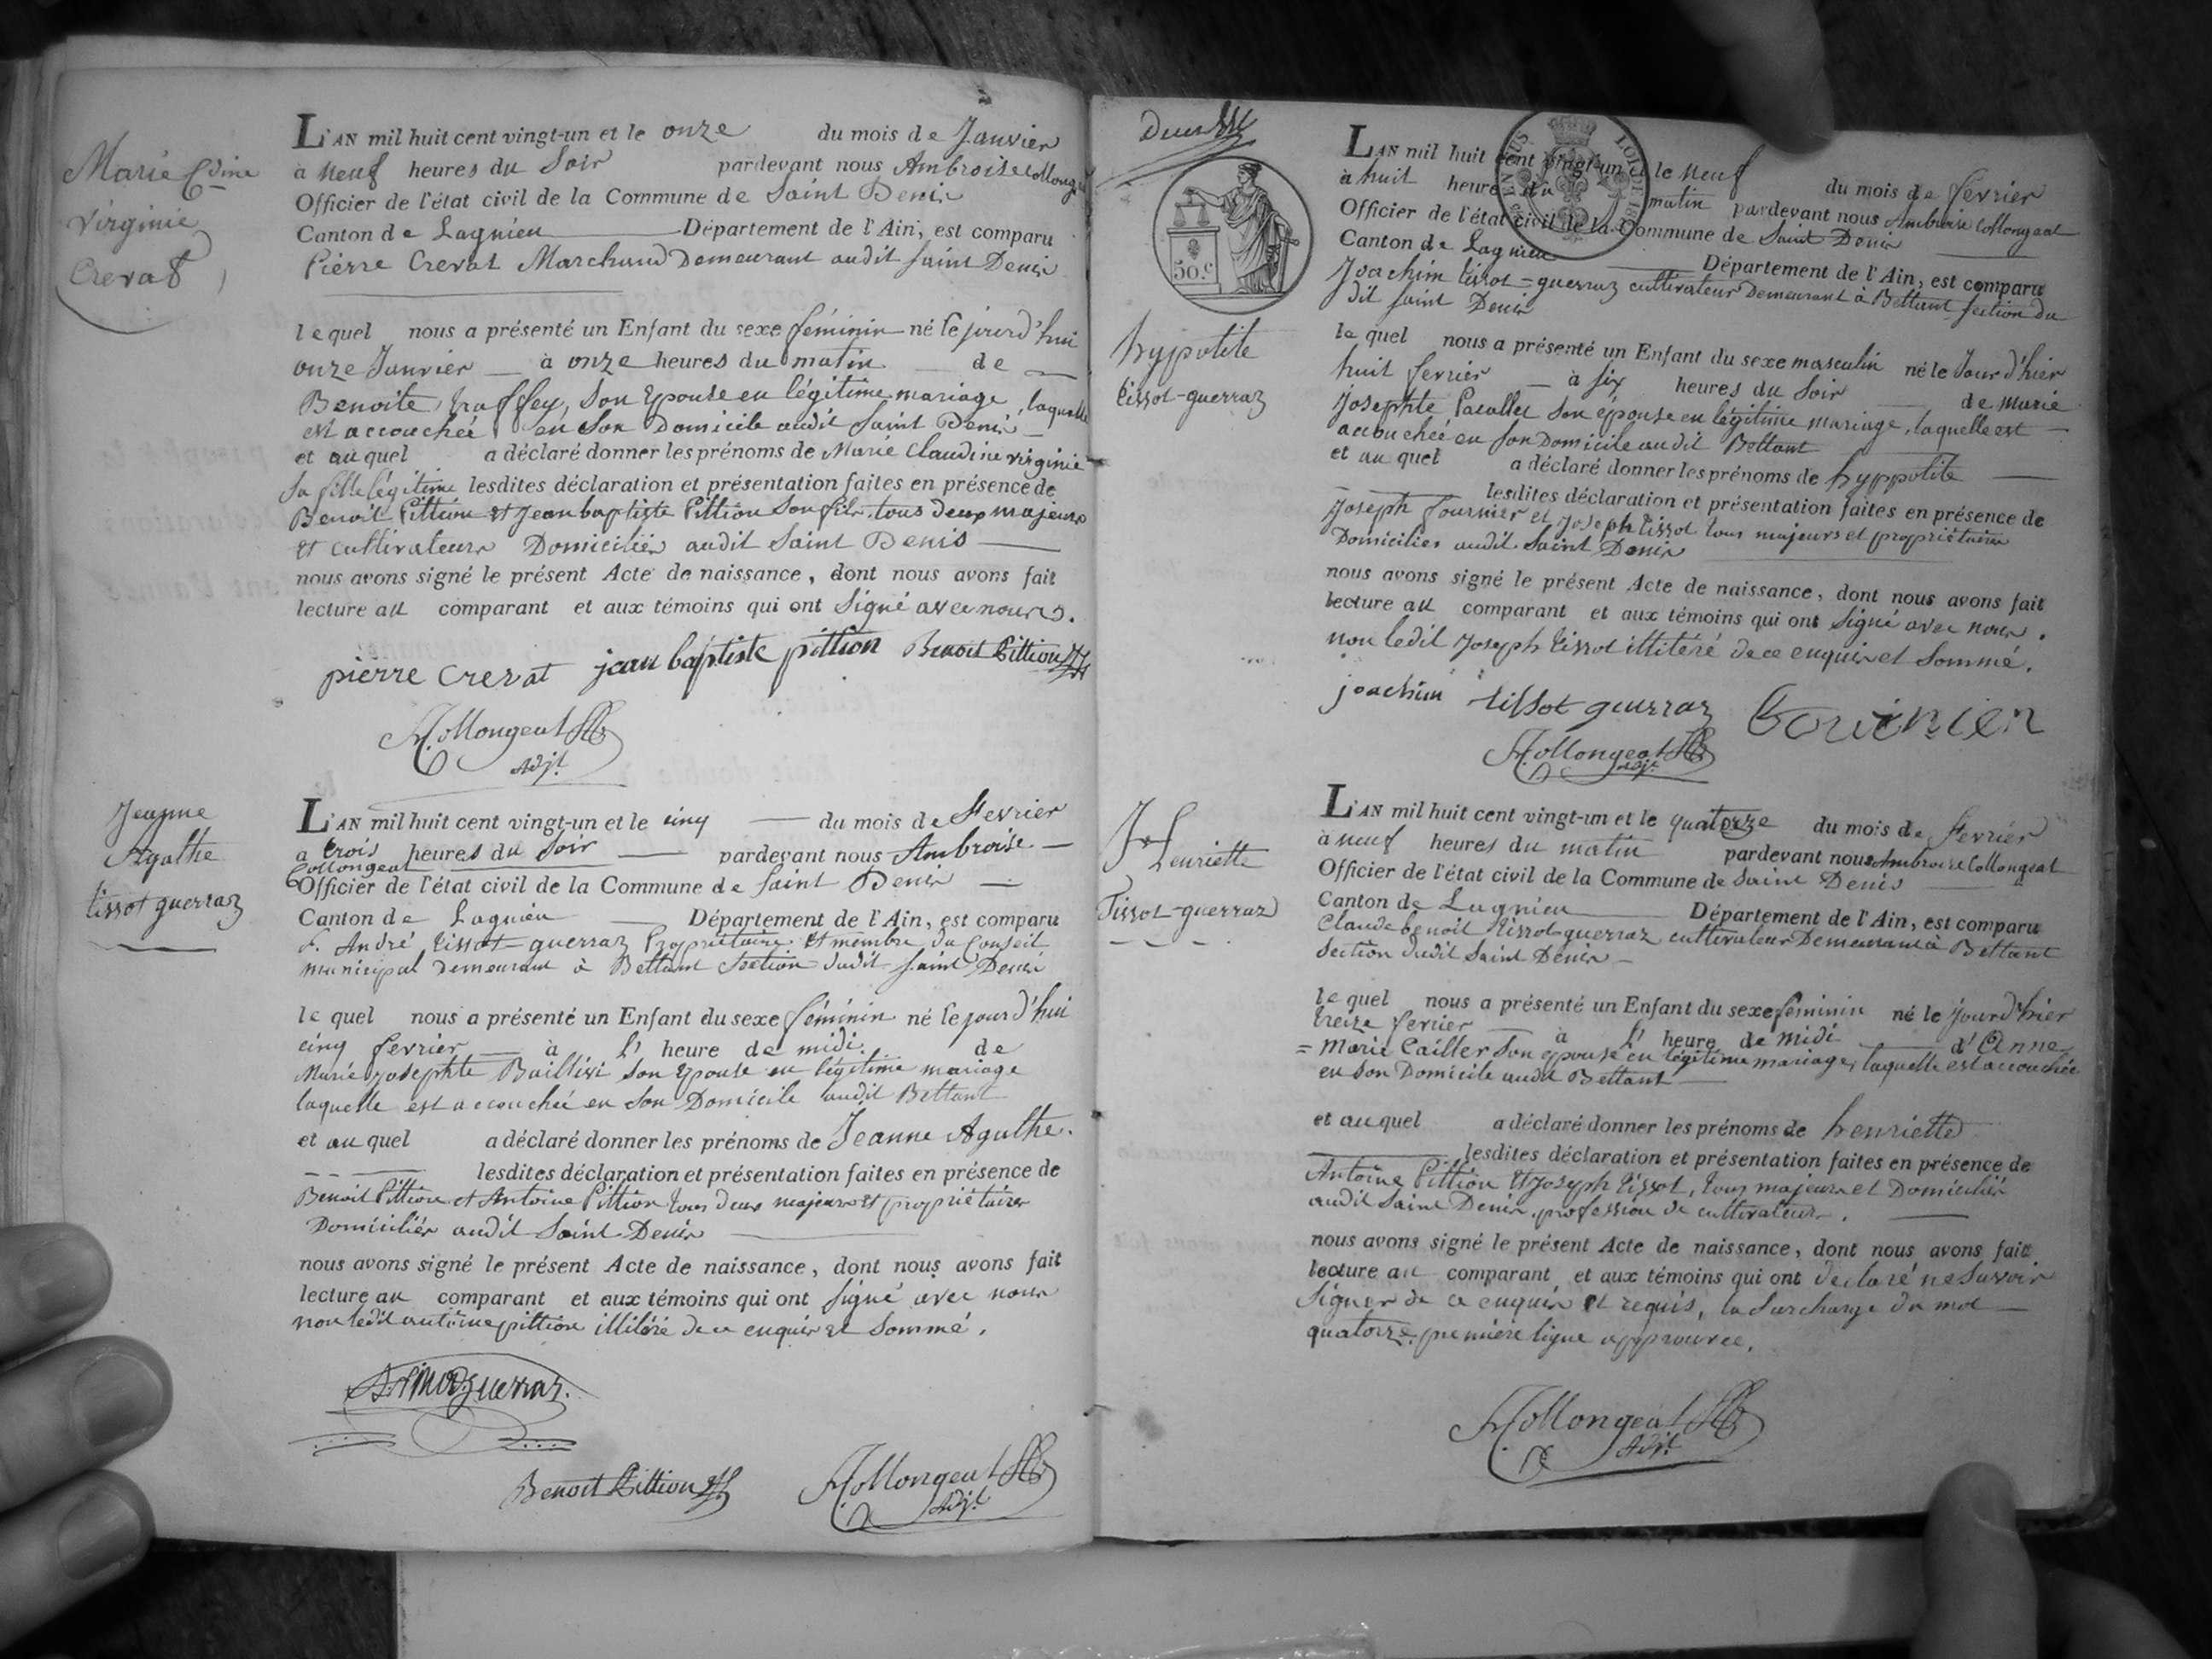 Marie Cdine
Virginie
Crevat
L'AN mil huit cent vingt-un et le onze du mois de Janvier
à neuf heures du Soir pardevant nous Ambroise Collongeat
Officier de l'état civil de la Commune de Saint Denis
Canton de Lagnieu Département de l'Ain, est comparu
Pierre Crevat Marchand Demeurant audit Saint Denis
lequel nous a présenté un Enfant du sexe féminin né le jourd'hui
onze Janvier à onze heures du matin de
Benoite Truffey, Son Epouse en légitime mariage, laquelle
est accouchée en Son Domicile audit Saint Denis
et au quel a déclaré donner les prénoms de Marie Claudine virginie
Sa fille légitime lesdites déclaration et présentation faites en présence de
Benoit Pittion et Jean baptiste Pittion Son fils, tous deux majeurs
et cultivateurs Domiciliés audit Saint Denis
nous avons signé le présent Acte de naissance, dont nous avons fait
lecture au comparant et aux témoins qui ont Signé avec nous
pierre crevat jean baptiste pittion Benoit Pittion
Collongeat
Adjt
Jeanne
Agathe
tissot guerraz
L'AN mil huit cent vingt-un et le cinq du mois de Fevrier
à trois heures du Soir pardevant nous Ambroise
Collongeat
Officier de l'état civil de la Commune de Saint Denis
Canton de Lagnieu Département de l'Ain, est comparu
S. André tissot-guerraz Propriétaire et membre du Conseil
municipal demeurant à Bettant Section dudit Saint Denis
le quel nous a présenté un Enfant du sexe féminin né le jour d'hui
cinq fevrier à l' heure de midi. de
Marie Josephte son Epouse en légitime mariage
laquelle est accouchée en Son Domicile audit Bettant
et au quel a déclaré donner les prénoms de Jeanne Agathe.
lesdites déclaration et présentation faites en présence de
Benoit Pittion et Antoine Pittion tous deux majeurs et propriétaires
Domiciliés audit Saint Denis
nous avons signé le présent Acte de naissance, dont nous avons fait
lecture au comparant et aux témoins qui ont signé avec nous
non ledit antoine pittion illitéré de ce enquis et Sommé.
Benoit Pittion
Collongeat
Adjt
50.c
hypolite
tissot-guerraz
L'AN mil huit cent vingt-un et le neuf du mois de fevrier
à huit heures du matin pardevant nous Ambroise Collongeat
Officier de l'état civil de la Commune de Saint Denis
Canton de Lagnieu Département de l'Ain, est comparu
Joachim tissot-guerraz cultivateur Demeurant à Bettant Section du
dit Saint Denis
le quel nous a présenté un Enfant du sexe masculin né le Jour d'hier
huit fevrier à six heures du Soir de marie
Josephte Pacallet Son épouse en légitime mariage, laquelle est
accouchée en son Domicile audit Bettant
et au quel a déclaré donner les prénoms de hyppolite
lesdites déclaration et présentation faites en présence de
Joseph fournier et Joseph tissot tous majeurs et propriétaires
Domiciliés audit Saint Denis
nous avons signé le présent Acte de naissance, dont nous avons fait
lecture au comparant et aux témoins qui ont Signé avec nous.
non ledit Joseph tissot illitéré de ce enquis et Sommé.
joachim tissot guerraz
Collongeat
adjt
henriette
Tissot-guerraz
L'AN mil huit cent vingt-un et le quatorze du mois de Fevrier
à neuf heures du matin pardevant nous Ambroise Collongeat
Officier de l'état civil de la Commune de Saint Denis
Canton de Lagnieu Département de l'Ain, est comparu
Claude benoit tissot guerraz cultivateur Demeurant à Bettant
Section dudit Saint Denis
le quel nous a présenté un Enfant du sexe féminin né le jourd'hier
treize fevrier à l' heure de midi d'Anne
= Marie Cailler Son épouse en légitime mariage, laquelle est accouchée
en Son Domicile audit Bettant
et au quel a déclaré donner les prénoms de henriette
lesdites déclaration et présentation faites en présence de
Antoine Pittion et Joseph tissot, tous majeurs et Domiciliés
audit Saint Denis, profession de cultivateurs.
nous avons signé le présent Acte de naissance, dont nous avons fait
lecture au comparant et aux témoins qui ont declaré ne Savoir
Signer de ce enquis et requis, la Surcharge du mot
quatorze, première ligne approuvée.
Collongeat
Adjt